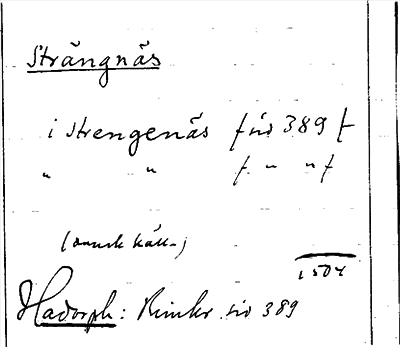 Strängnäs
i strengenäs för 389 f
" " f. " " f
(dansk käll-)
1504
Hadorph: Rimkr. sid 389